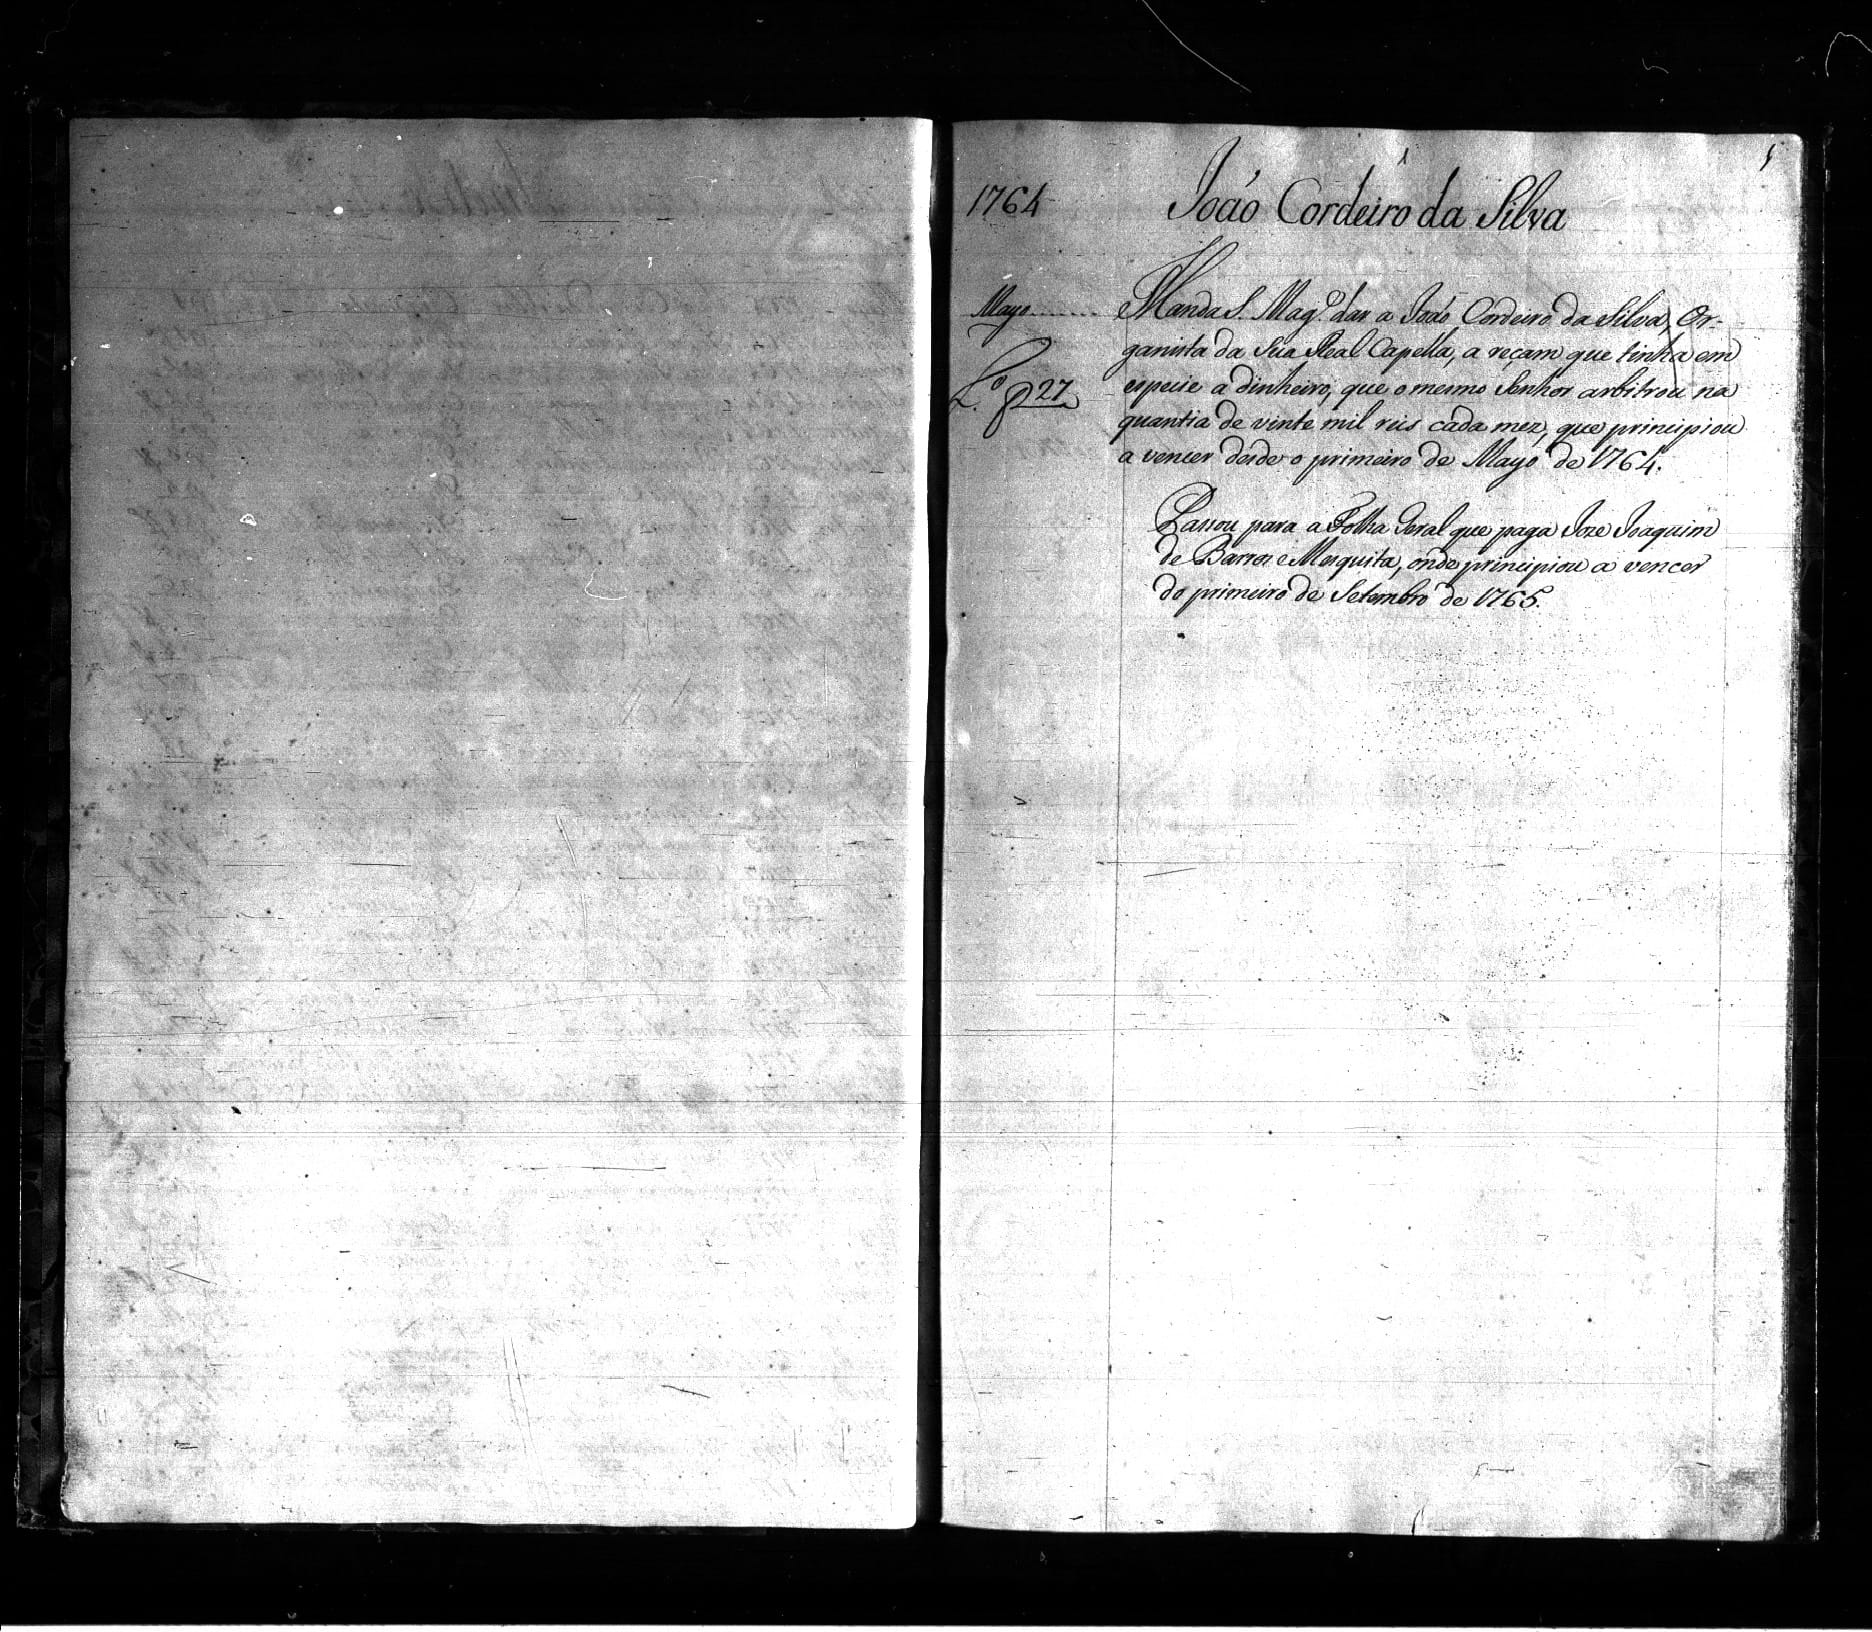 1
1764 João Cordeiro da Silva
Mayo........ Manda S. Magᵉ. dar a João Cordeiro da Silva, Or-
ganista da Sua Real Capella, a reçam que tinha em
Lº. 27 especie a dinheiro, que o mesmo Senhor arbitrou na
quantia de vinte mil reis cada mez, que principiou
a vencer desde o primeiro de Mayo de 1764.
Passou para a Folha Geral que paga Joze Joaquim
de Barros e Mesquita, onde principiou a vencer
do primeiro de Setembro de 1765.